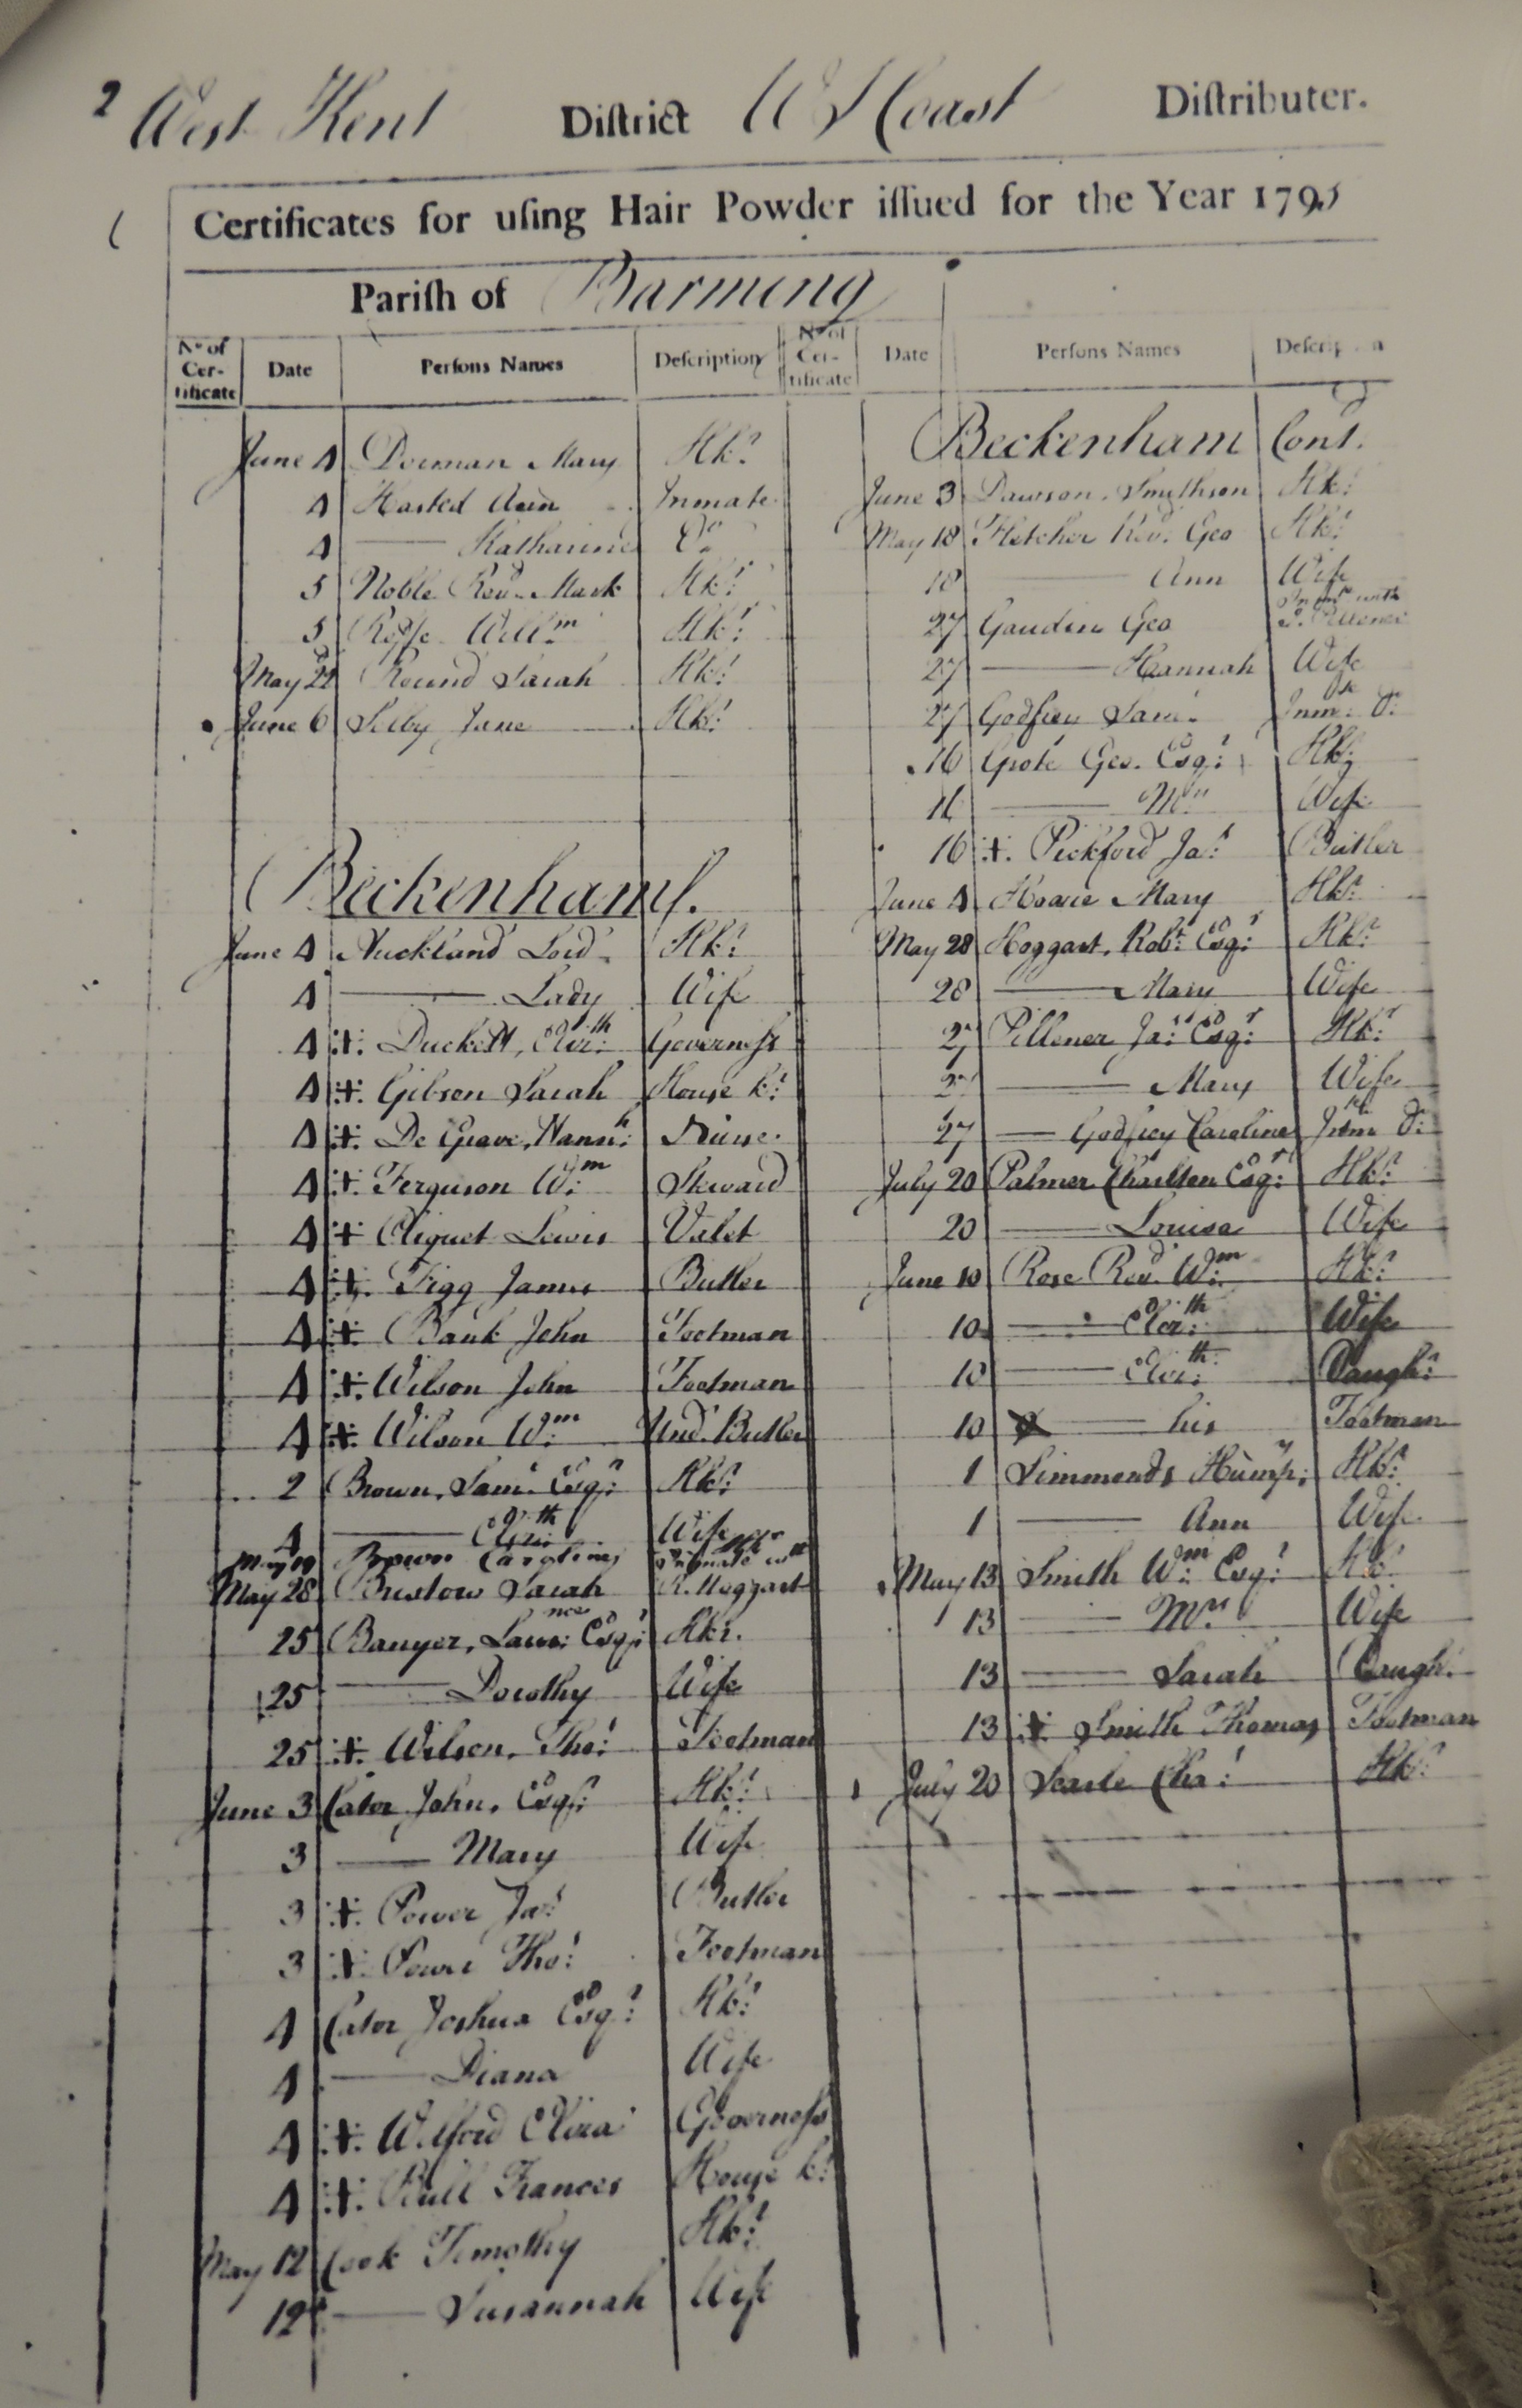 2 West Kent District W S Coast Distributer.
Certificates for uſing Hair Powder iſſued for the Year 1795
Pariſh of Barming
No of Certificate Date Perſons Names Deſcription
June 4 Dorman Mary Hkr
4 Hasted Ann Inmate
4 —— Katharine Do
5 Noble Revd Mark Hkr
5 Willm Hkr
May 22 Round Sarah Hkr
June 6 Selby Jane Hkr
Beckenham.
June 4 Auckland Lord Hkr
4 —— Lady Wife
4 + Duckett, Elizth Governeſs
4 + Gibson Sarah House kr
4 + De Grave, Hannh Nurse
4 + Ferguson Wm Steward
4 + Cliquet Lewis Valet
4 + Figg James Butler
4 + Bank John Footman
4 + Wilson John Footman
4 + Wilson Wm Undr Butler
2 Brown, Saml Esqr Hkr
4 —— Elizth Wife
May 19 Brown Caroline
May 28 Bristow Sarah R. Hoggart
25 Banyer, Lawnce Esqr Hkr.
25 —— Dorothy Wife
25 + Wilson, Thos Footman
June 3 Cator John, Esqr Hkr
3 —— Mary Wife
3 + Power Jas Butler
3 + Thos Footman
4 Cator Joshua Esqr Hkr
4 —— Diana Wife
4 + Welford Eliza Governeſs
4 + Bull Frances House kr
May 12 Cook Timothy Hkr
12 —— Susannah Wife
No of Certificate Date Perſons Names Deſcription
Beckenham Cont.
June 3 Dawson, Smithson Hkr
May 18 Fletcher Revd Geo Hkr
18 —— Ann Wife
27 Gaudin Geo Inmte with J. Pillener
27 —— Hannah Wife
27 Godfrey Saml Inmte Do
16 Grote Geo. Esqr Hkr
16 —— Mrs Wife
16 + Pickford Jas Butler
June 4 Hoare Mary Hkr
May 28 Hoggart, Robt Esqr Hkr
28 —— Mary Wife
27 Pillener Jas Esqr Hkr
27 —— Mary Wife
27 —— Godfrey Caroline Inmte Do
July 20 Palmer Charlton Esqr Hkr
20 —— Louisa Wife
June 10 Rose Revd Wm Hkr
10 —— Elizth Wife
10 —— Elizth Daughr
10 —— his Footman
1 Simmonds Humpy Hkr
1 —— Ann Wife
May 13 Smith Wm Esqr Hkr
13 —— Mrs Wife
13 —— Sarah Daughr
13 + Smith Thomas Footman
July 20 Searle Chas Hkr